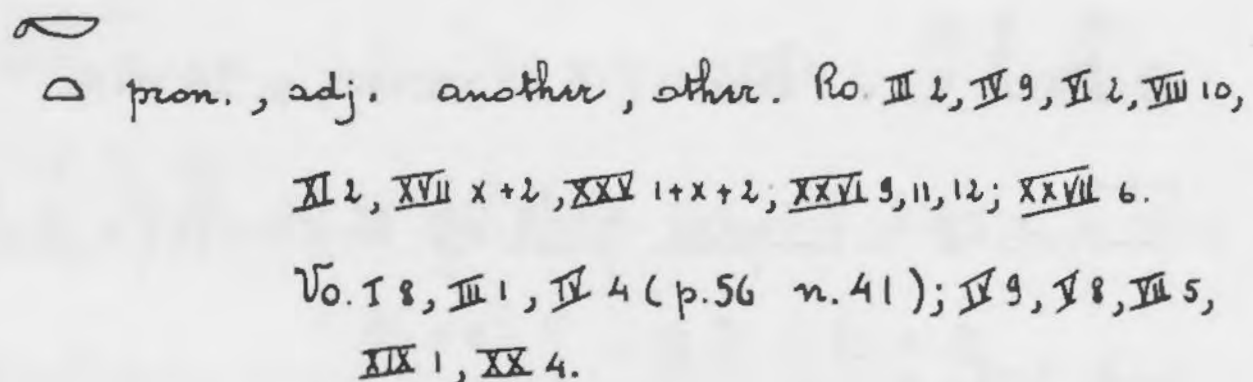 𓎡
𓏏 pron., adj. another, other. Ro. III 2, IV 9, VI 2, VIII 10,
XI 2, XVII x+2, XXV 1+x+2; XXVI 9,11,12; XXVII 6.
Vo. I 8, III 1, IV 4 (p.56 n.41); IV 9, V 8, VII 5,
XIX 1, XX 4.